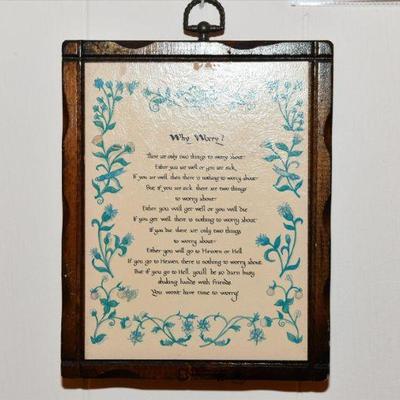 Why Worry?
There are only two things to worry about-
Either you are well or you are sick,
If you are well, then there is nothing to worry about-
But if you are sick there are two things
to worry about-
Either you will get well or you will die
If you get well there is nothing to worry about-
If you die there are only two things
to worry about-
Either you will go to Heaven or Hell
If you go to Heaven, there is nothing to worry about.
But if you go to Hell, you'll be so darn busy
shaking hands with friends
You won't have time to worry!